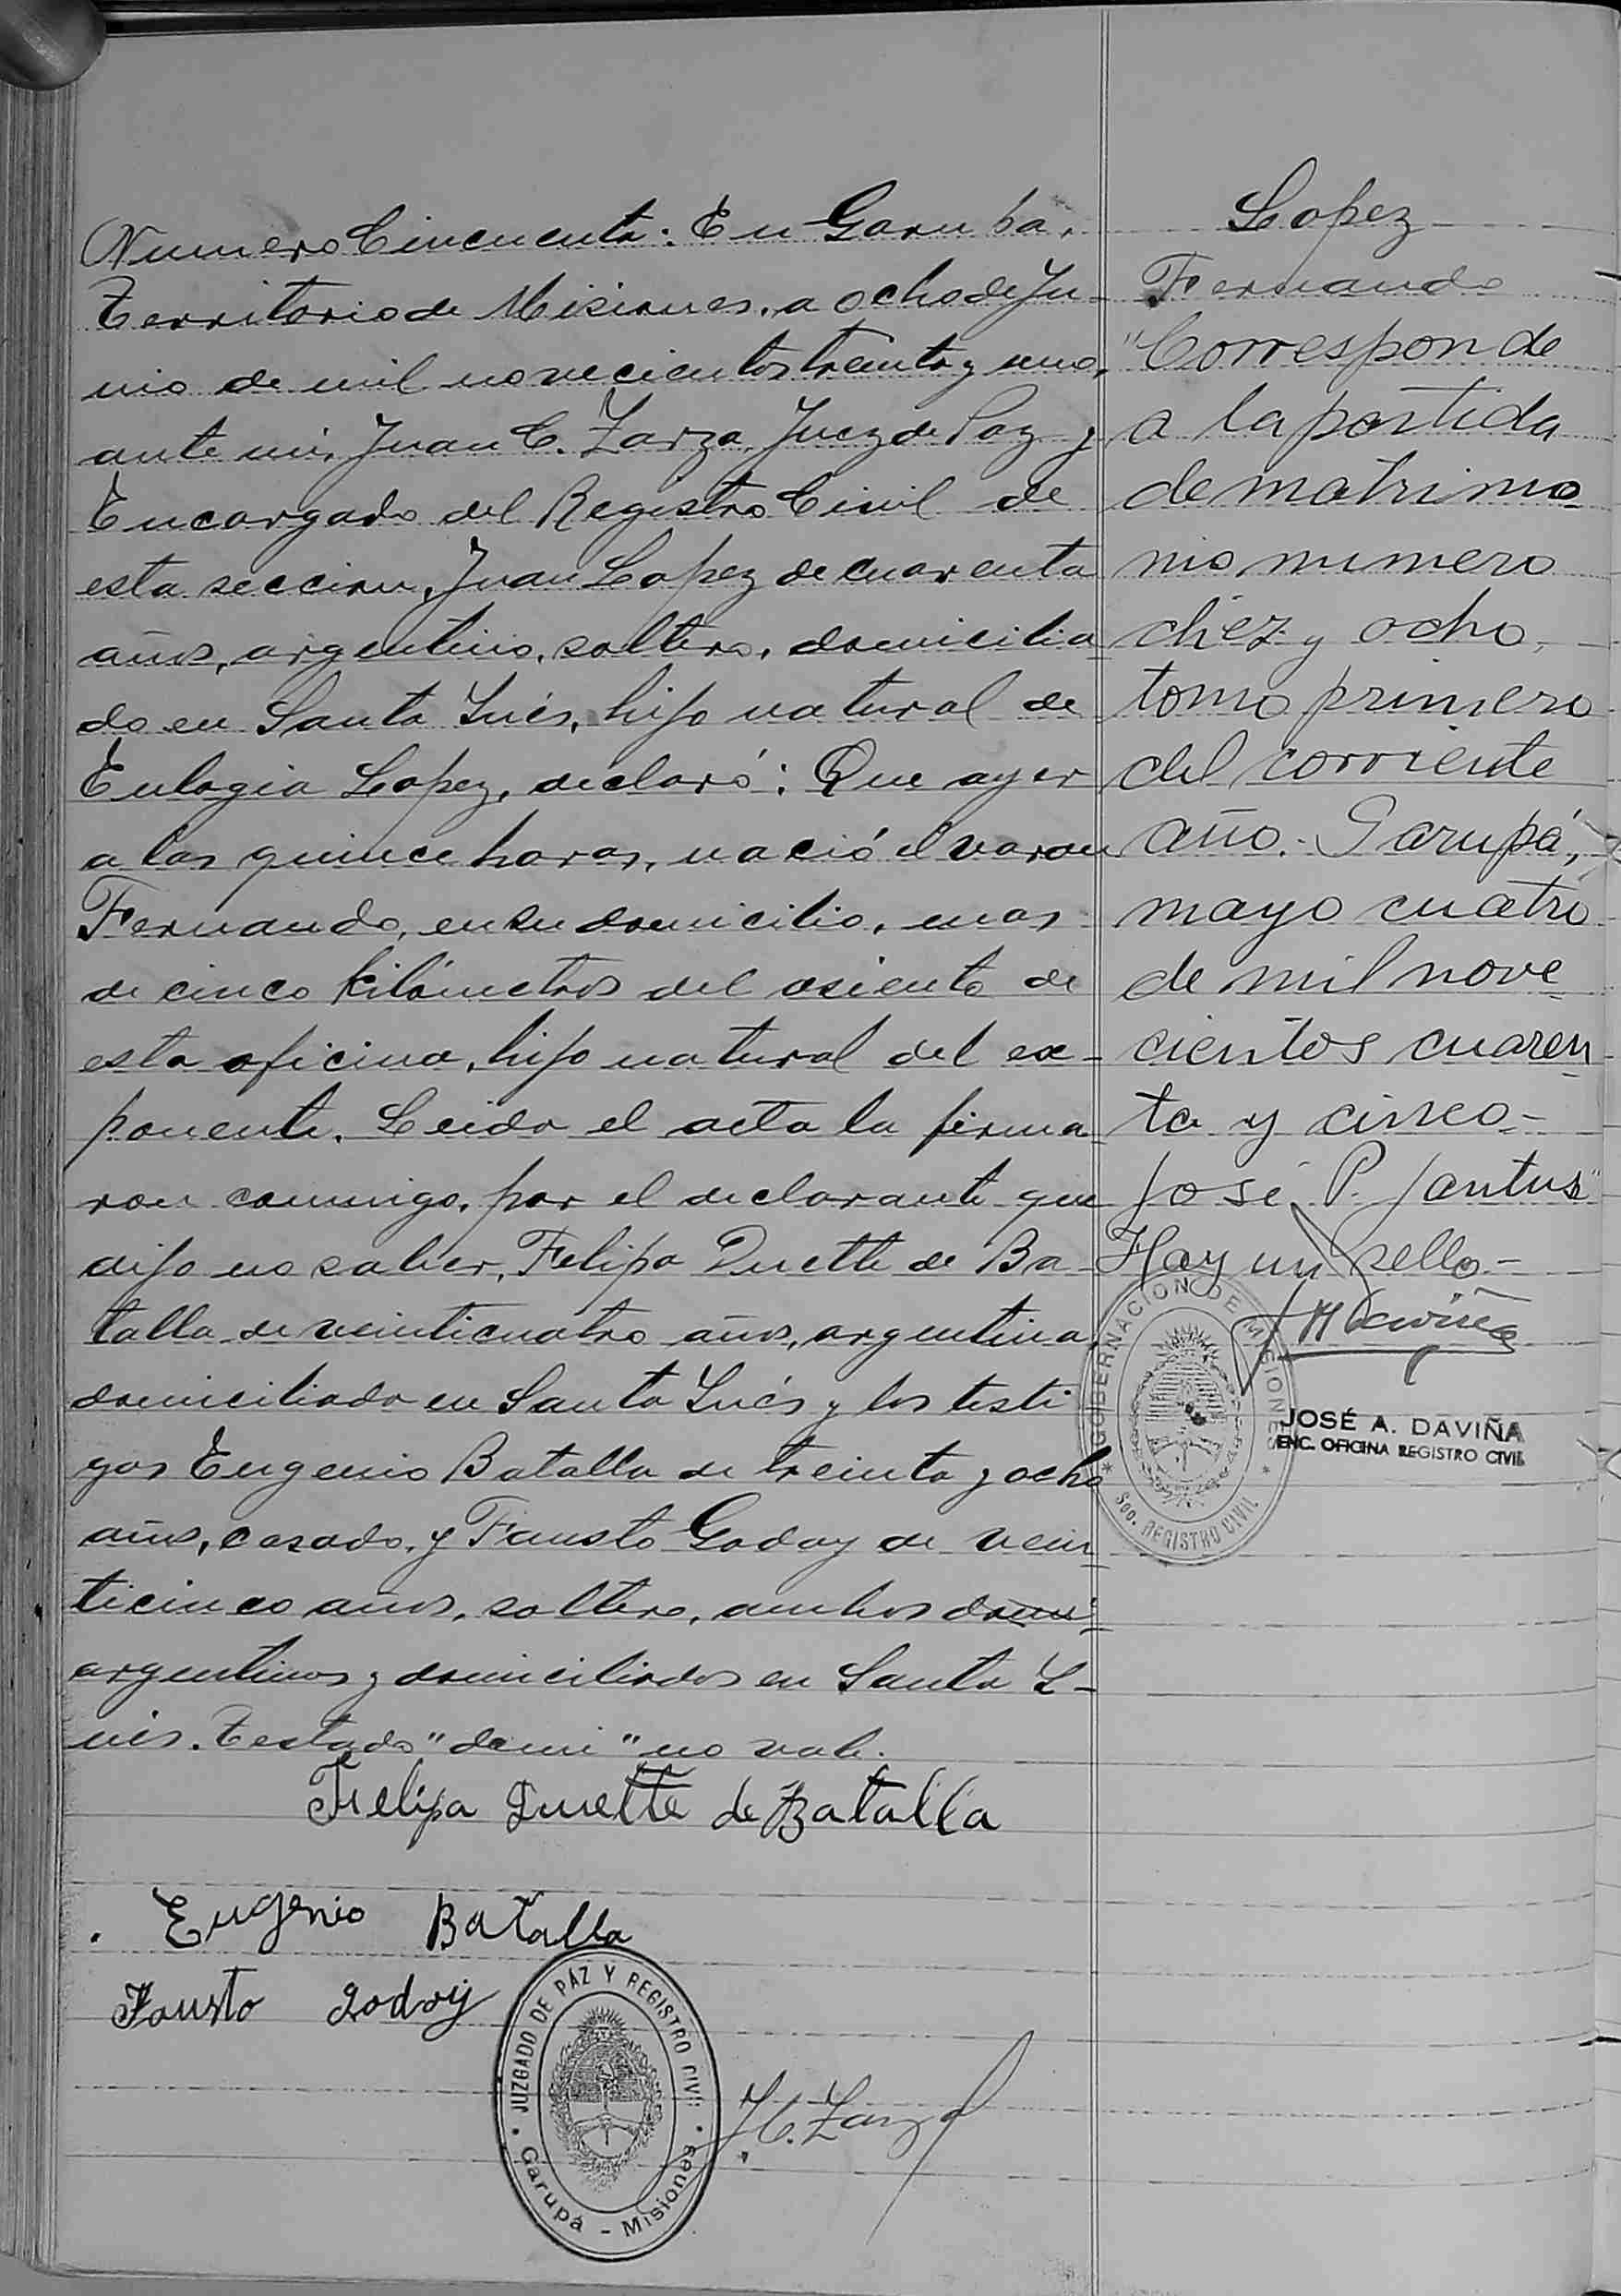 Numero Cincuenta: En Garupa,
Territorio de Misiones, a ocho de Ju-
nio de mil novecientos treinta y uno,
ante mi, Juan C. Zarza, Juez de Paz y
Encargado del Registro Civil de
esta seccion, Juan Lopez de cuarenta
años, argentino, soltero, domicilia
do en Santa Inés, hijo natural de
Eulogia Lopez, declaró: Que ayer
a las quince horas, nació el varon
Fernando, en su domicilio, mas
de cinco kilómetros del asiento de
esta oficina, hijo natural del ex-
ponente. Leida el acta la firma
ron conmigo, por el declarante que
dijo no saber, Felipa Duette de Ba-
talla de veinticuatro años, argentina,
domiciliada en Santa Inés y los testi
gos Eugenio Batalla de treinta y ocho
años, casado, y Fausto Godoy de vein
ticinco años, soltero, ambos domi
argentinos y domiciliados en Santa I-
nés. Testado "domi" no vale.
Felipa Duette de Batalla
Eugenio Batalla
Fausto Godoy
JUZGADO DE PAZ Y REGISTRO CIVIL
Garupá - Misiones
J.C. Zarza
Lopez
Fernando
"Corresponde
a la partida
de matrimo
nio numero
diez y ocho,
tomo primero
del corriente
año.- Garupá,
mayo cuatro
de mil nove
cientos cuaren
ta y cinco.-
José P. Santus"
Hay un sello.-
JADaviña
GOBERNACION DE MISIONES
Scc. REGISTRO CIVIL
JOSÉ A. DAVIÑA
ENC. OFICINA REGISTRO CIVIL